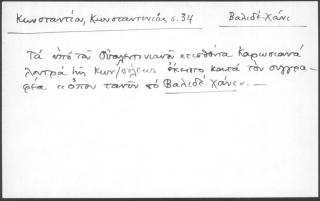 Κωνσταντία, Κωνσταντινιάς σ. 34 Βαλιδέ-Χάνι
Τά ὑπό τοῦ Οὐαλεντινιανοῦ κτισθέντα Καρωσιανά
λουτρά τῆς Κων/πόλεως ἔκειντο κατά τόν συγγρα-
φέα ὅπου τανῦν τό Βαλιδέ Χάνι. —